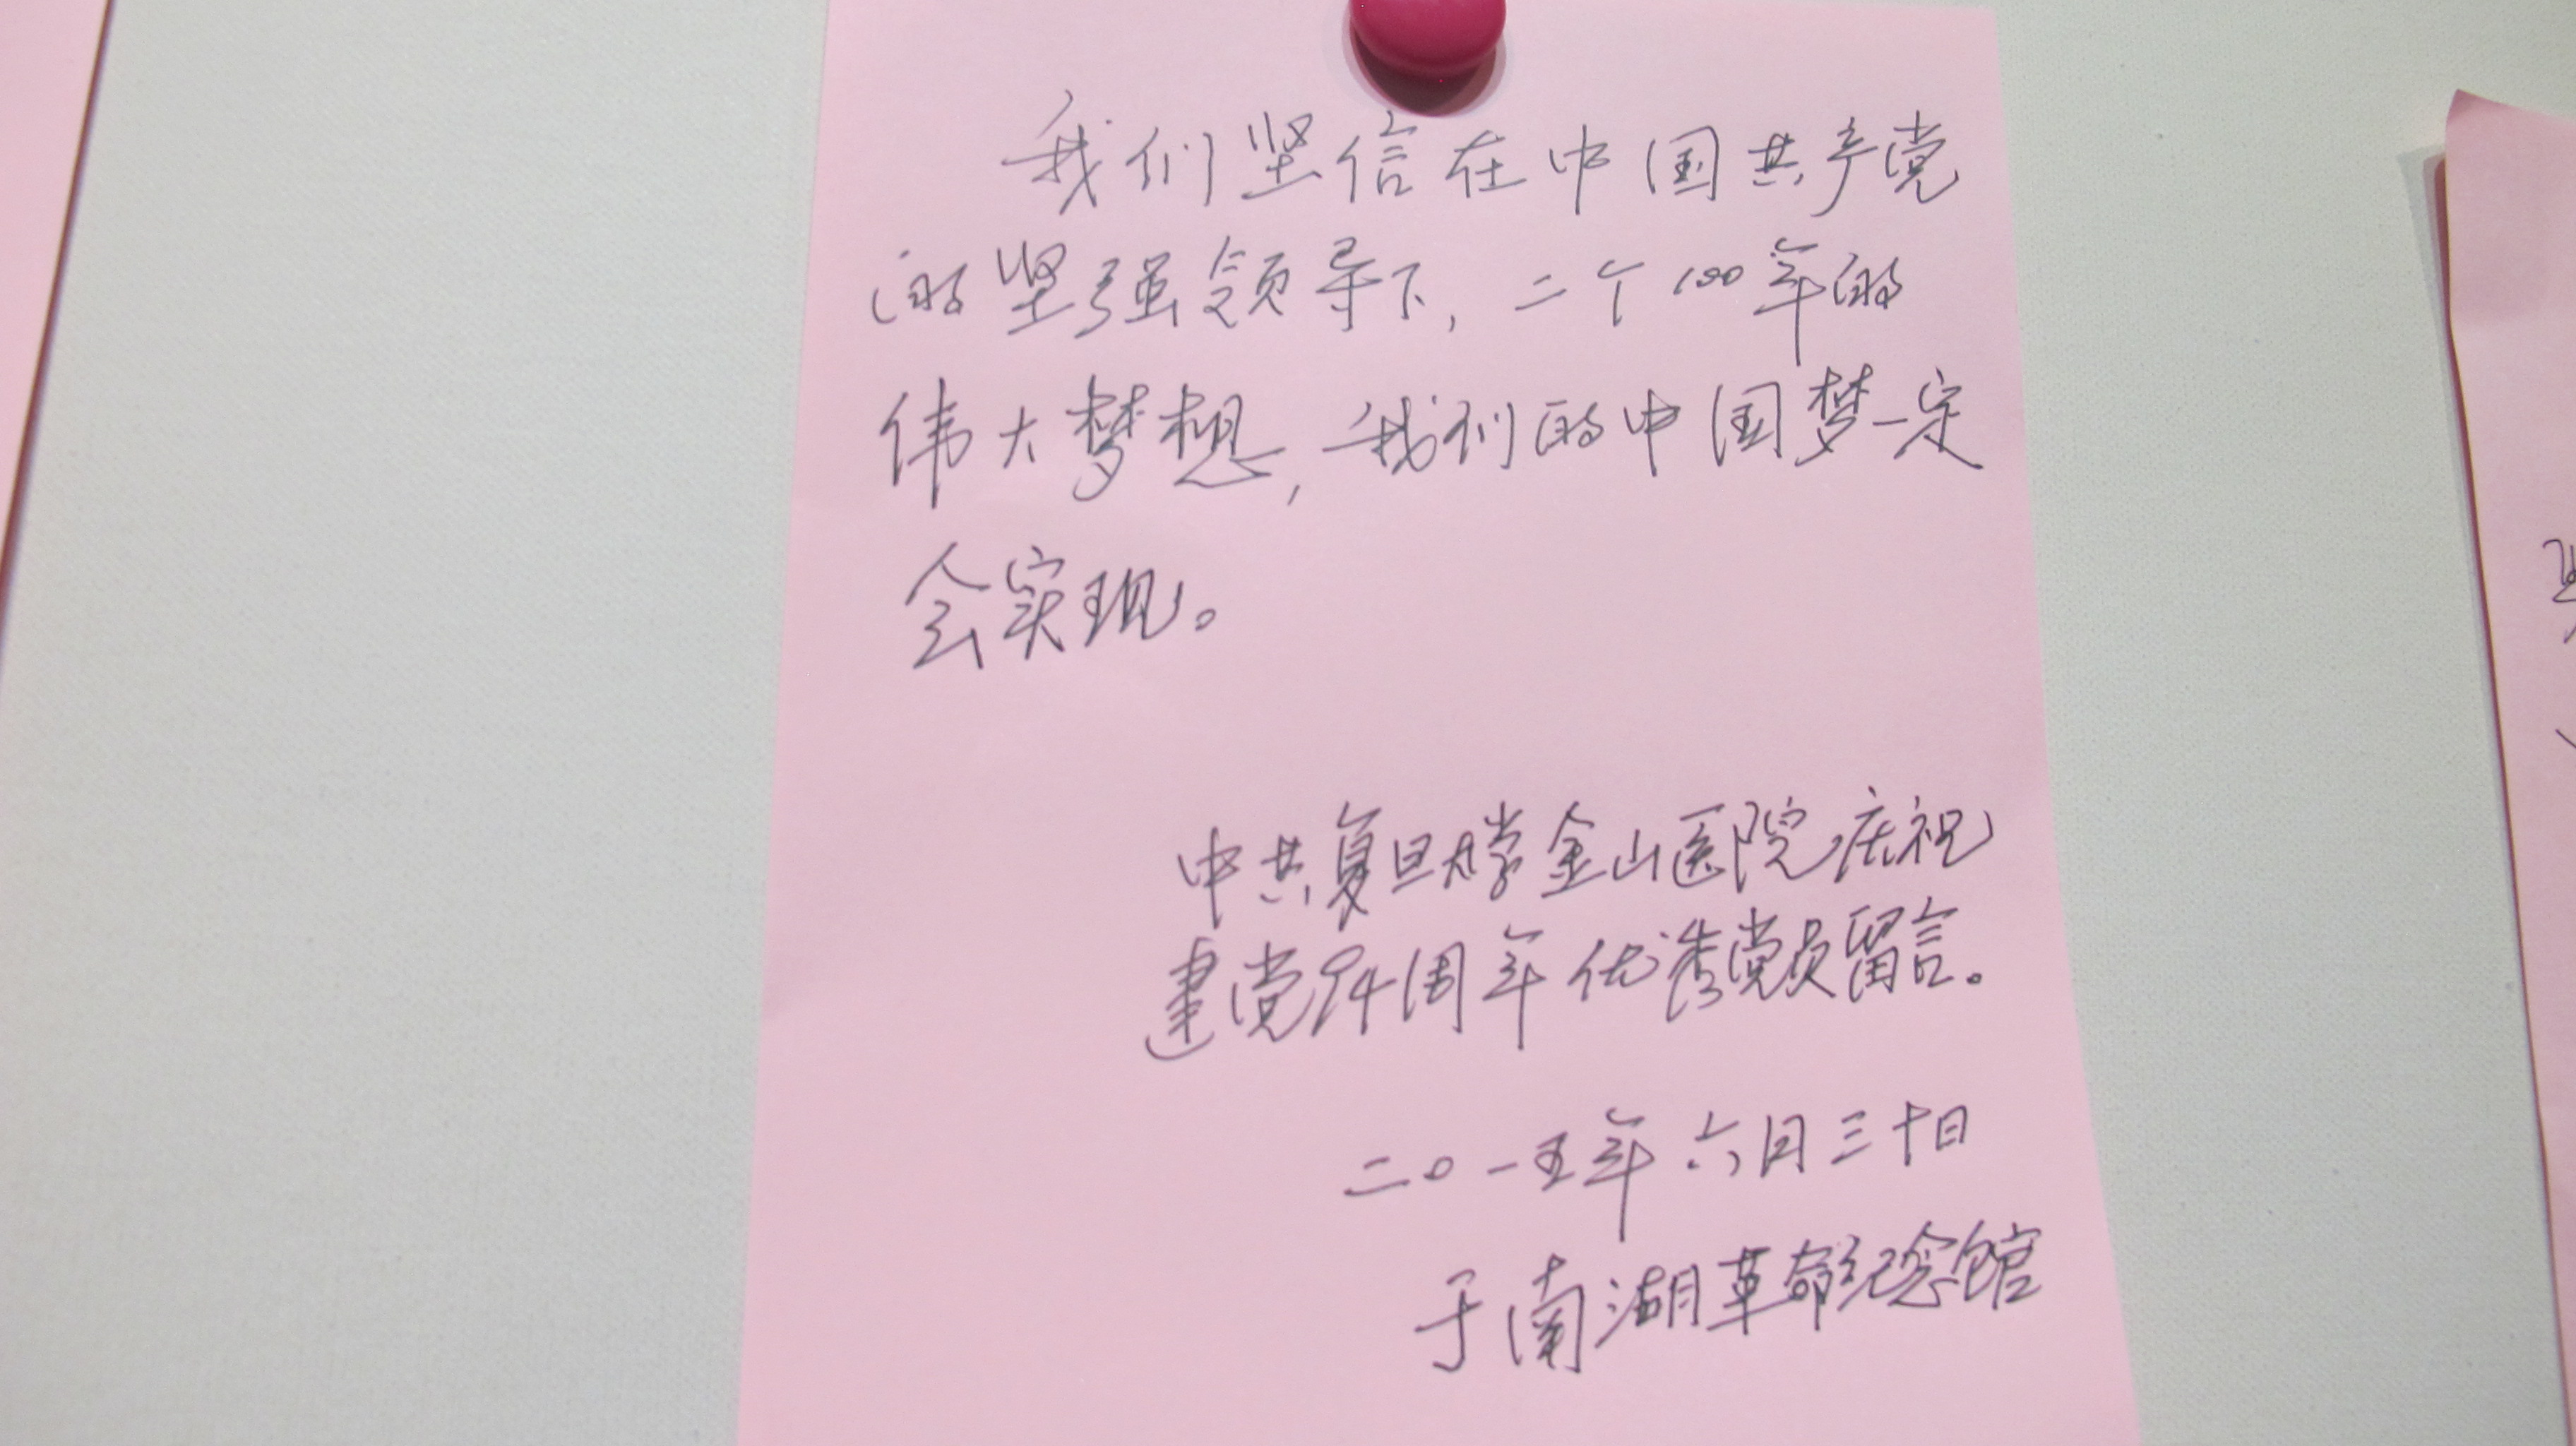 我们坚信在中国共产党
的坚强领导下,二个100年的
伟大梦想,我们的中国梦一定
会实现。
中共复旦大学金山医院庆祝
建党94周年优秀党员留言。
二〇一五年六月三十日
于南湖革命纪念馆